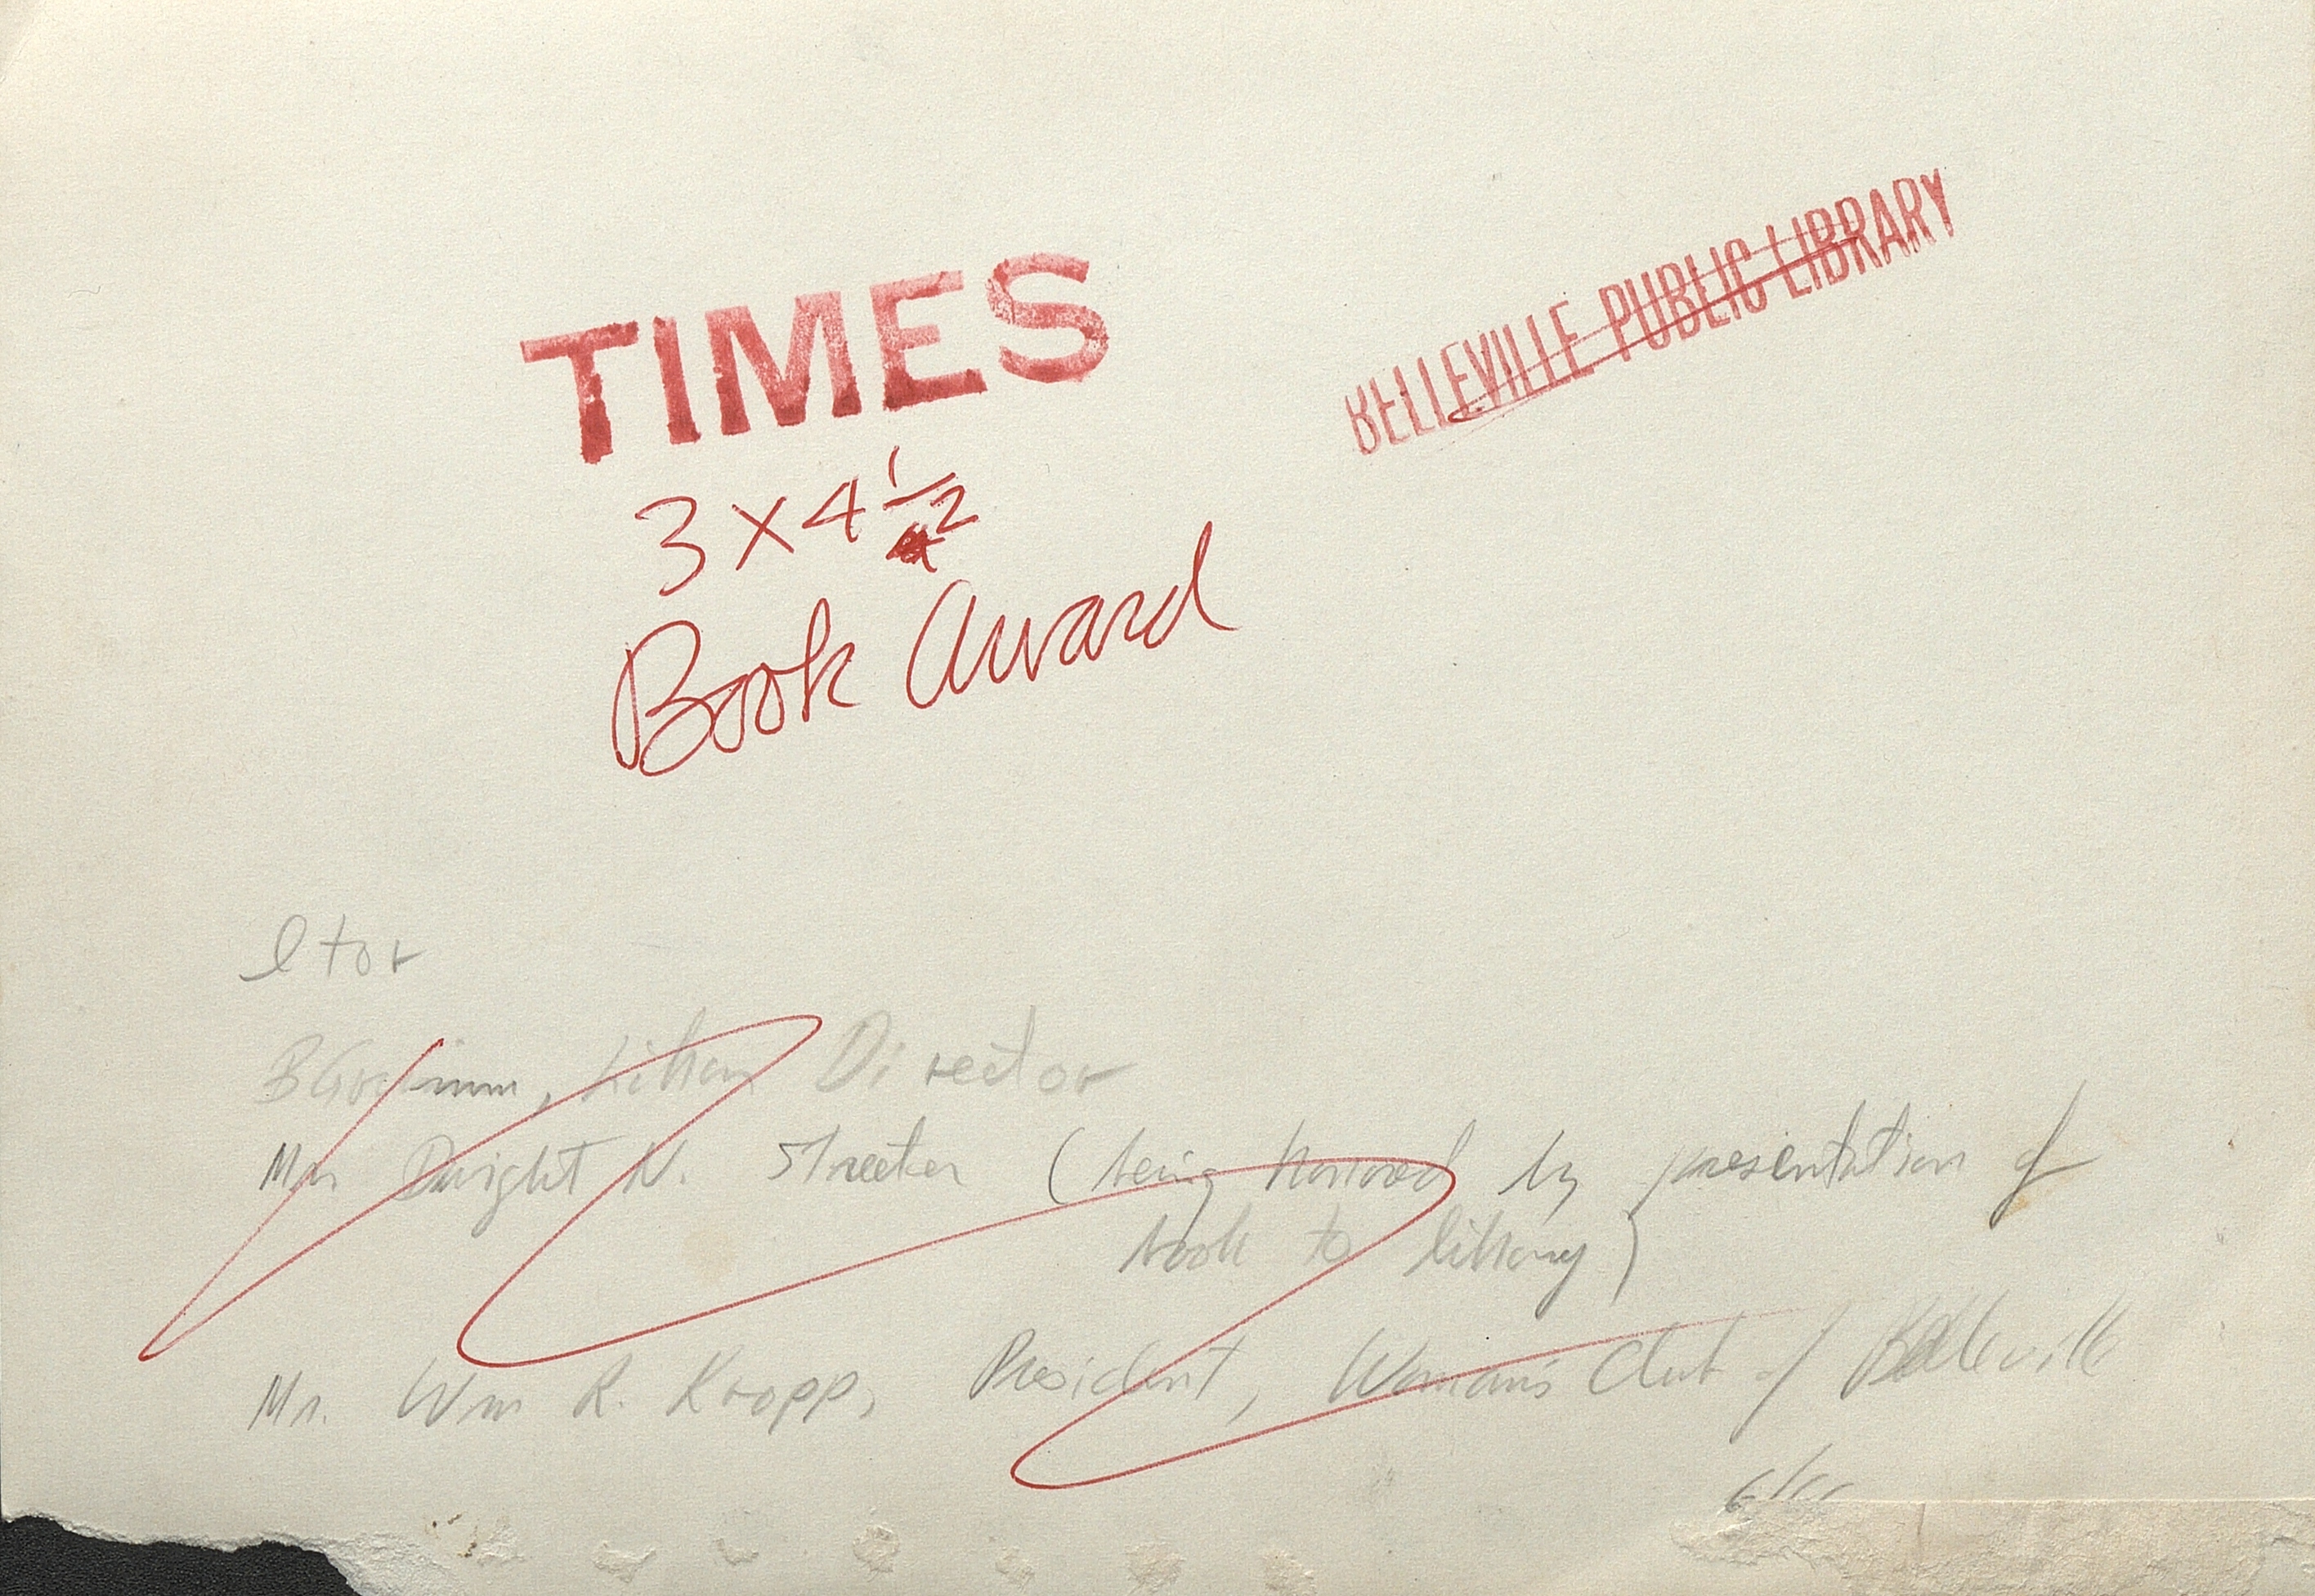 TIMES
BELLEVILLE PUBLIC LIBRARY
3 x 4 1/2
Book Award
l to r
Director
Mr Dwight N. Streeter (being honored by presentation of
book to library)
Mr. Wm R. Kropp, President, Woman's Club of Belleville